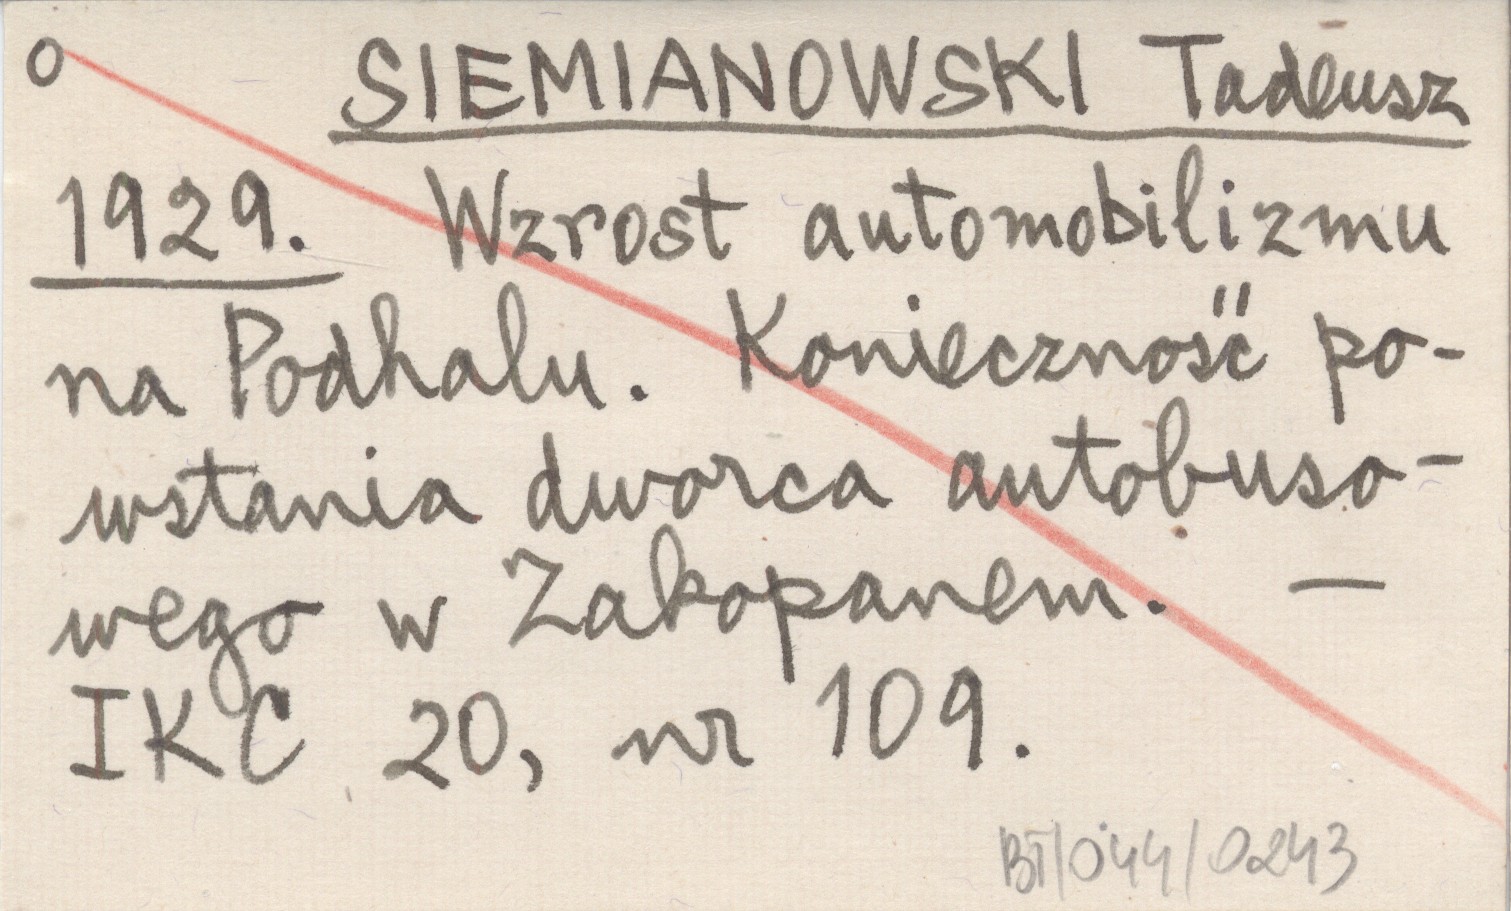 o SIEMIANOWSKI Tadeusz
1929. Wzrost automobilizmu
na Podhalu. Konieczność po-
wstania dworca autobuso-
wego w Zakopanem. —
IKC 20, nr 109.
BT/044/0243